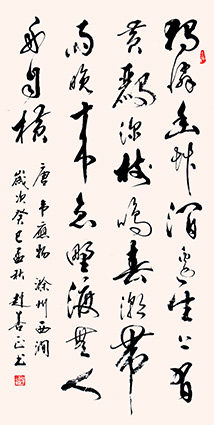 獨憐幽草澗邊生上有
黃鸝深樹鳴春潮帶
雨晚來急野渡無人
舟自橫
唐韋應物 滁州西澗
歲次癸巳孟秋 趙善正书